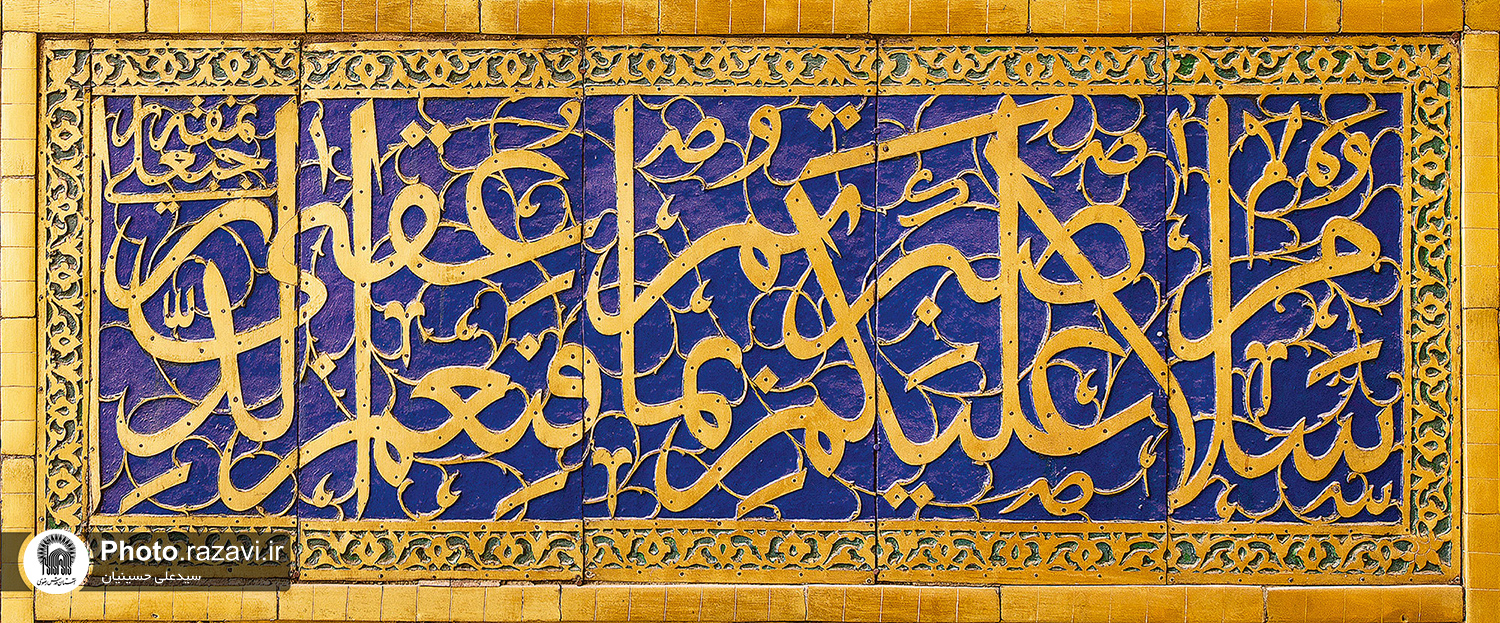 سَلَامٌ عَلَيْكُمْ بِمَا صَبَرْتُمْ فَنِعْمَ عُقْبَى الدَّارِ
Photo.razavi.ir
سیدعلی حسینیان